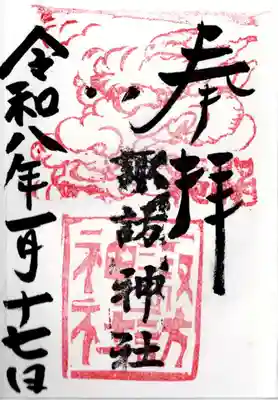 奉拝
諏訪神社
令和八年一月十七日
諏訪神社